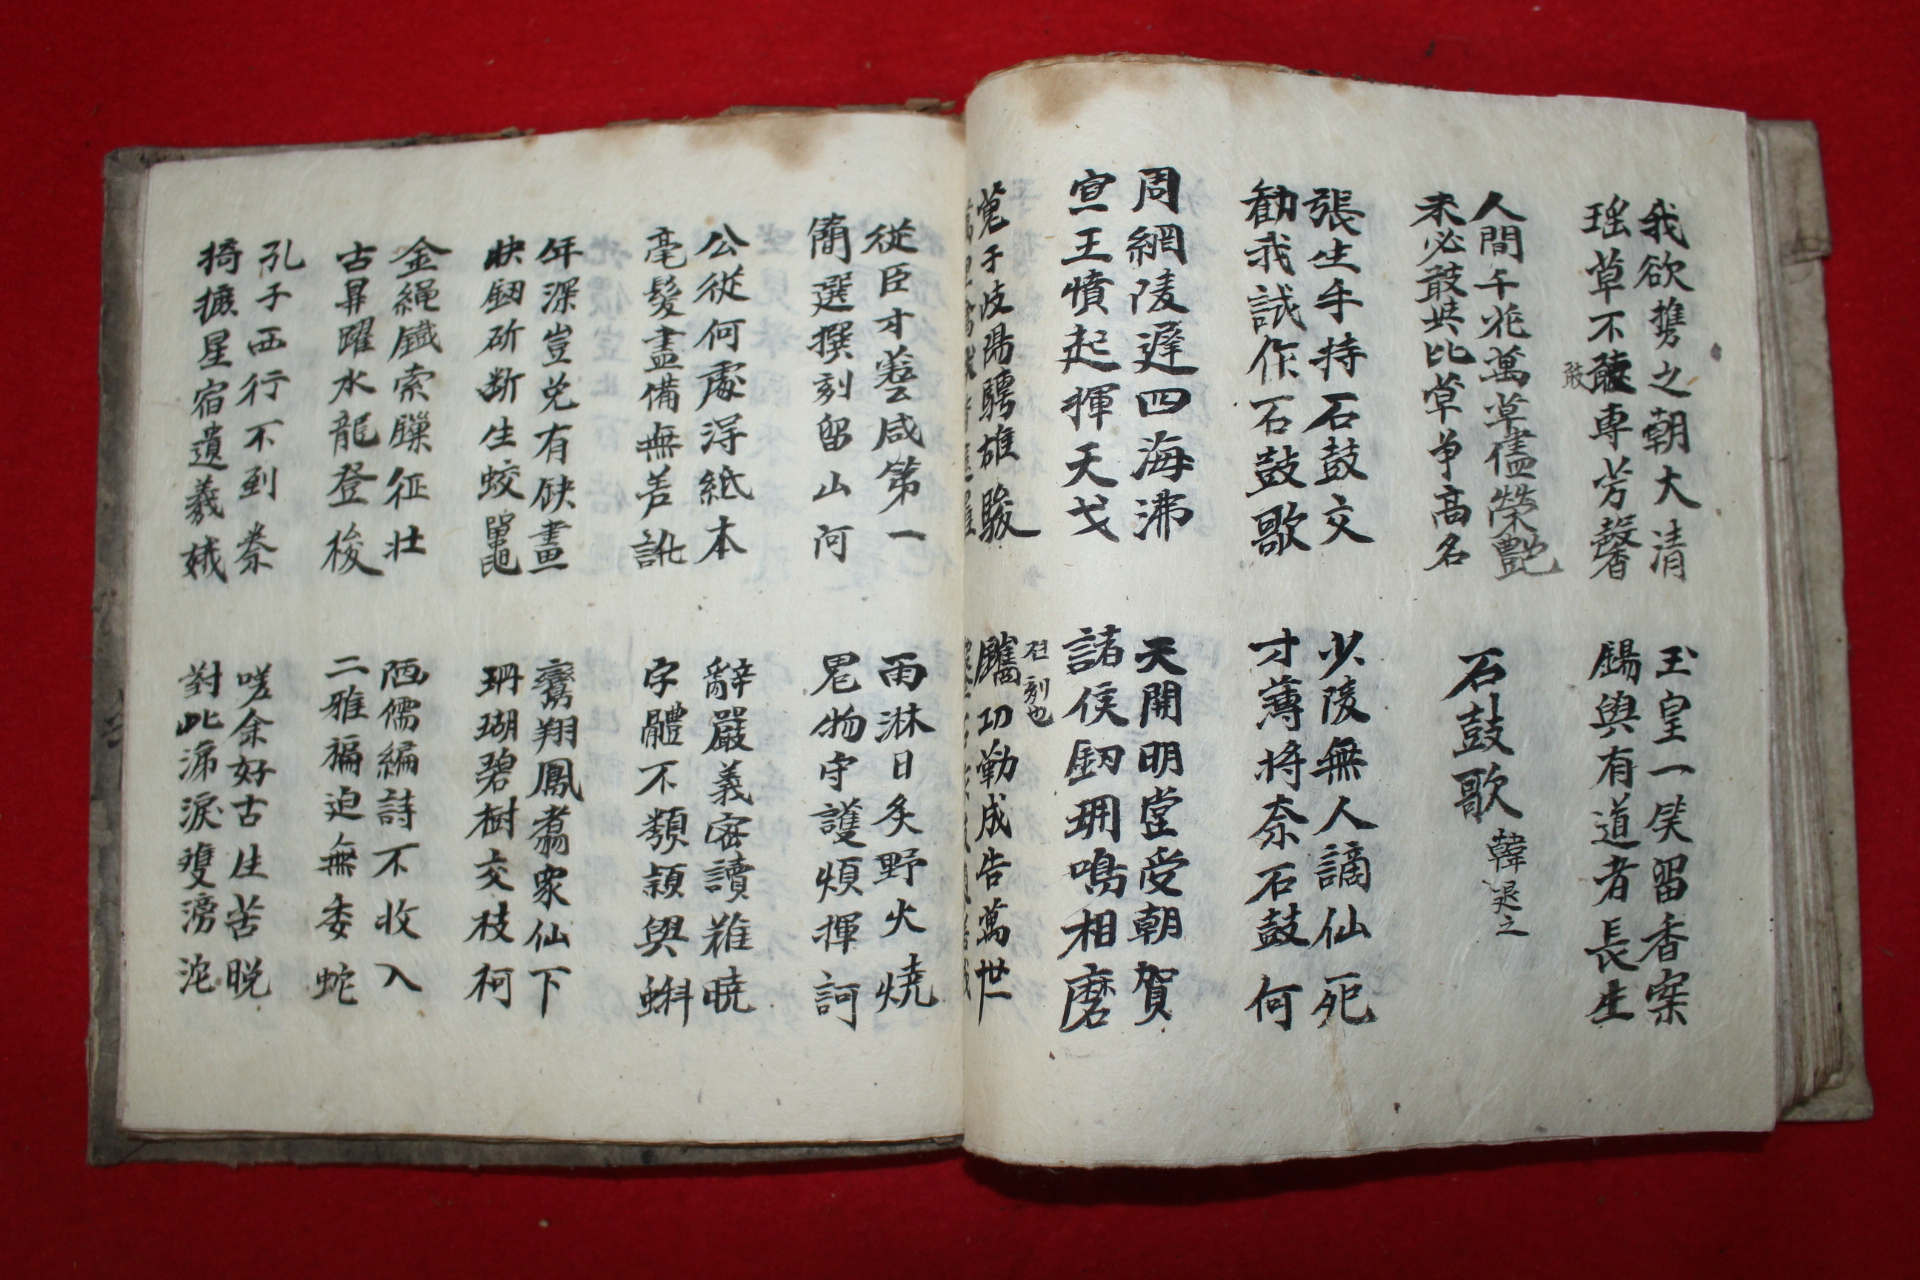 我欲携之朝大清
瑤草不敢專芳馨
敢
玉皇一笑留香案
賜與有道者長生
人間千花萬草儘榮艶
未必敢共比草爭高名
石鼓歌 韓退之
張生手持石鼓文
勸我試作石鼓歌
少陵無人謫仙死
才薄將奈石鼓何
周網陵遲四海沸
宣王憤起揮天戈
天開明堂受朝賀
諸侯釼珮鳴相磨
蒐于岐陽騁雄駿
젼刻也
功勤成告萬世
從臣才藝咸第一
簡選撰刻留山河
雨淋日炙野火燒
鬼物守護煩揮訶
公從何處浔紙本
毫髮盡備無差訛
辭嚴義密讀難曉
字體不類穎與蝌
年深豈免有缺畫
快釼斫斷生蛟鼉
鸞翔鳳翥衆仙下
珊瑚碧樹交枝柯
金繩鐵索征壯
古鼎躍水龍登梭
陋儒編詩不收入
二雅褊迫無委蛇
孔子西行不到秦
掎摭星宿遺羲娥
嗟余好古生苦晩
對此涕淚雙滂沱